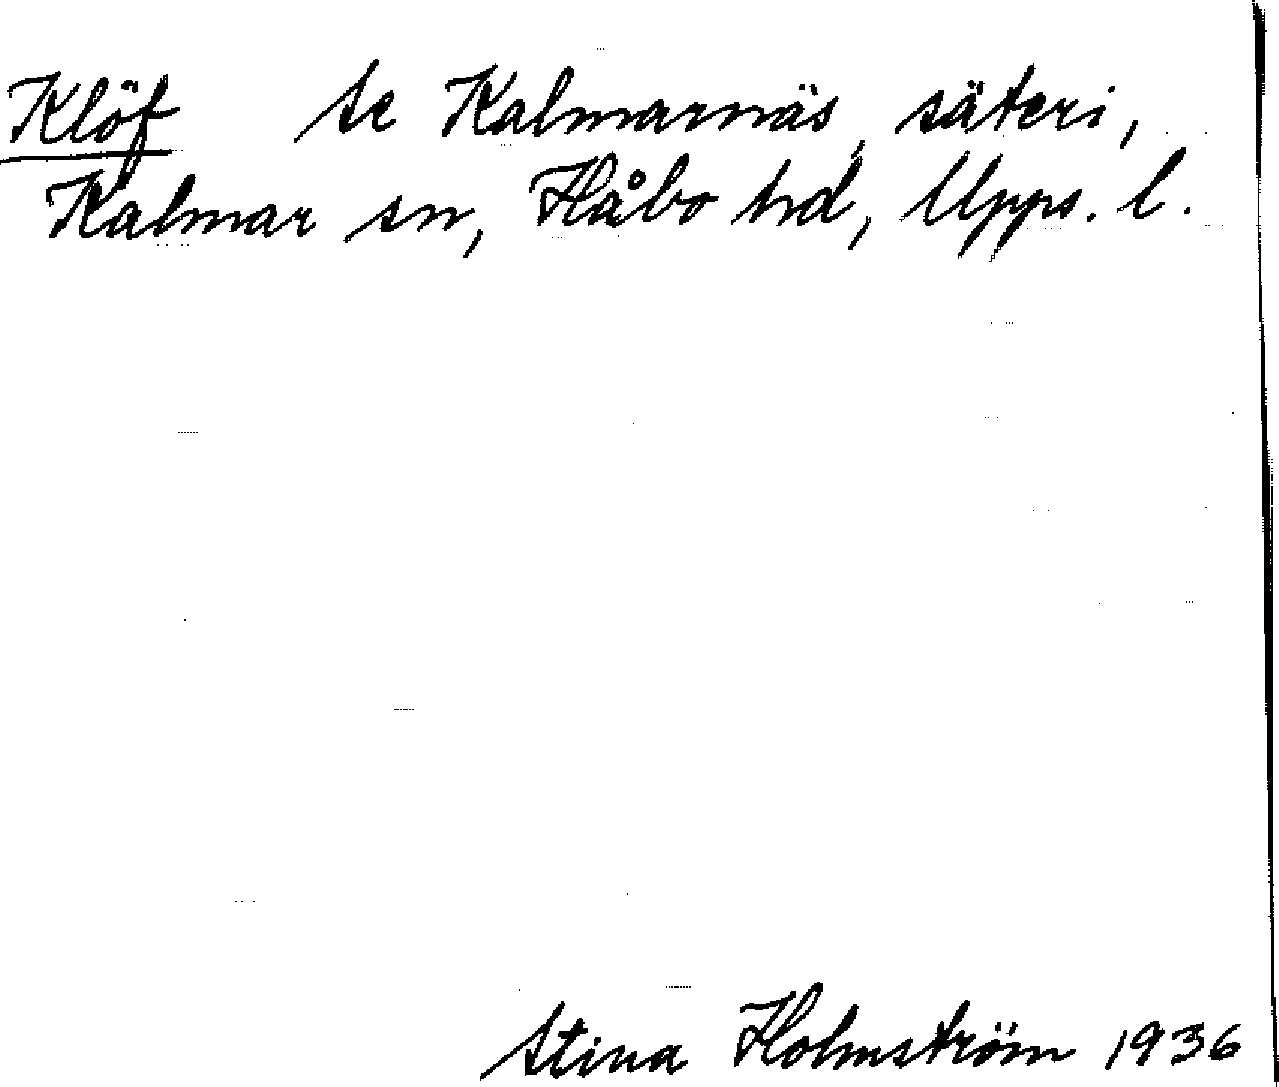 Klöf Se Kalmarnäs, säteri,
Kalmar sn, Håbo hd, Upps. l.
Stina Holmström 1936